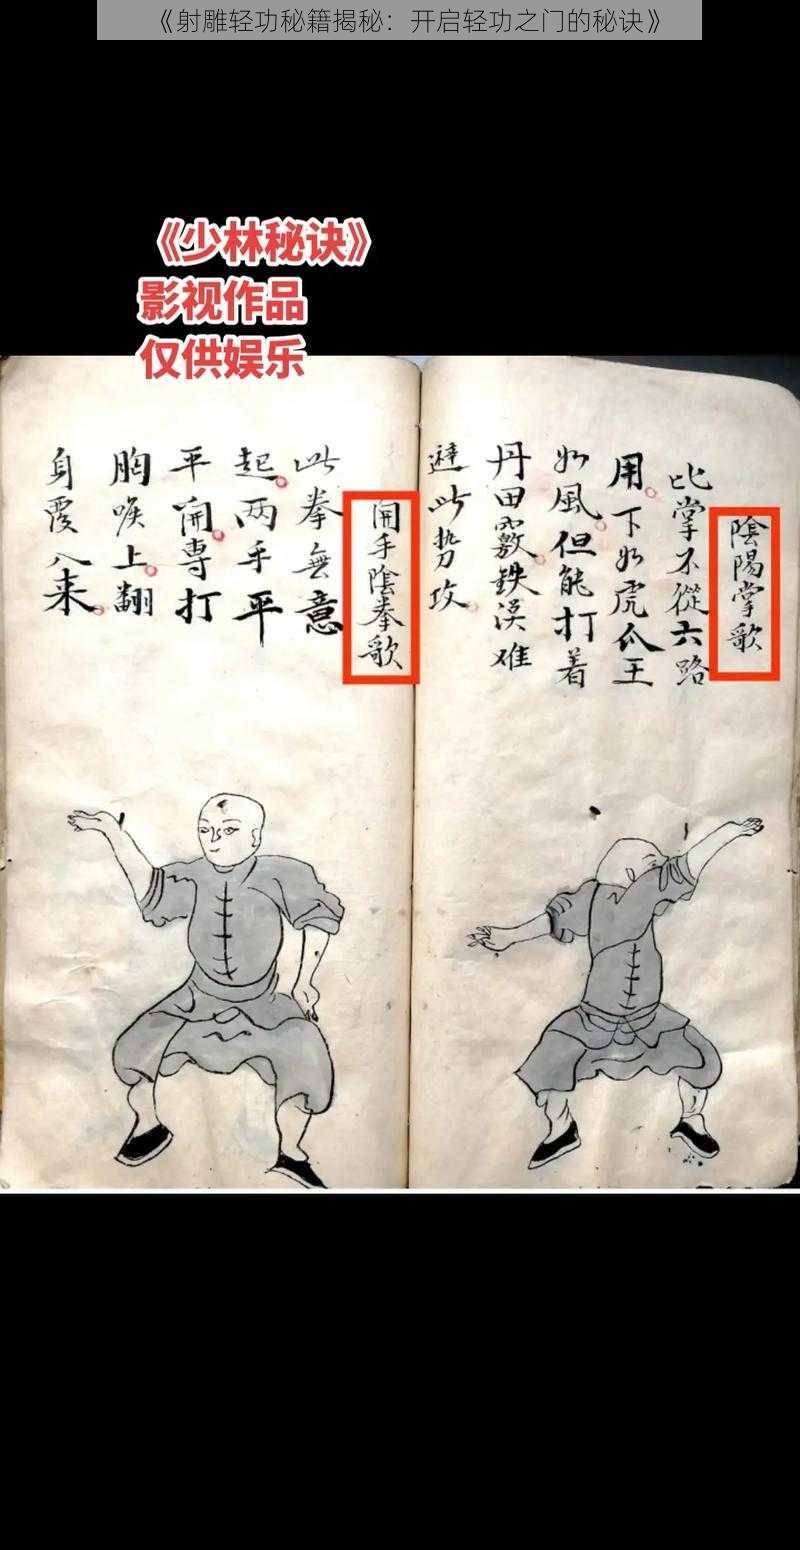 《射雕轻功秘籍揭秘：开启轻功之门的秘诀》
《少林秘诀》
影视作品
仅供娱乐
陰陽掌歌
比掌不從六路
用下如虎爪王
如風但能打着
丹田竅鉄漢难
避此势攻
開手陰拳歌
此拳無意
起两手平
平開專打
胸喉上翻
身覆入来